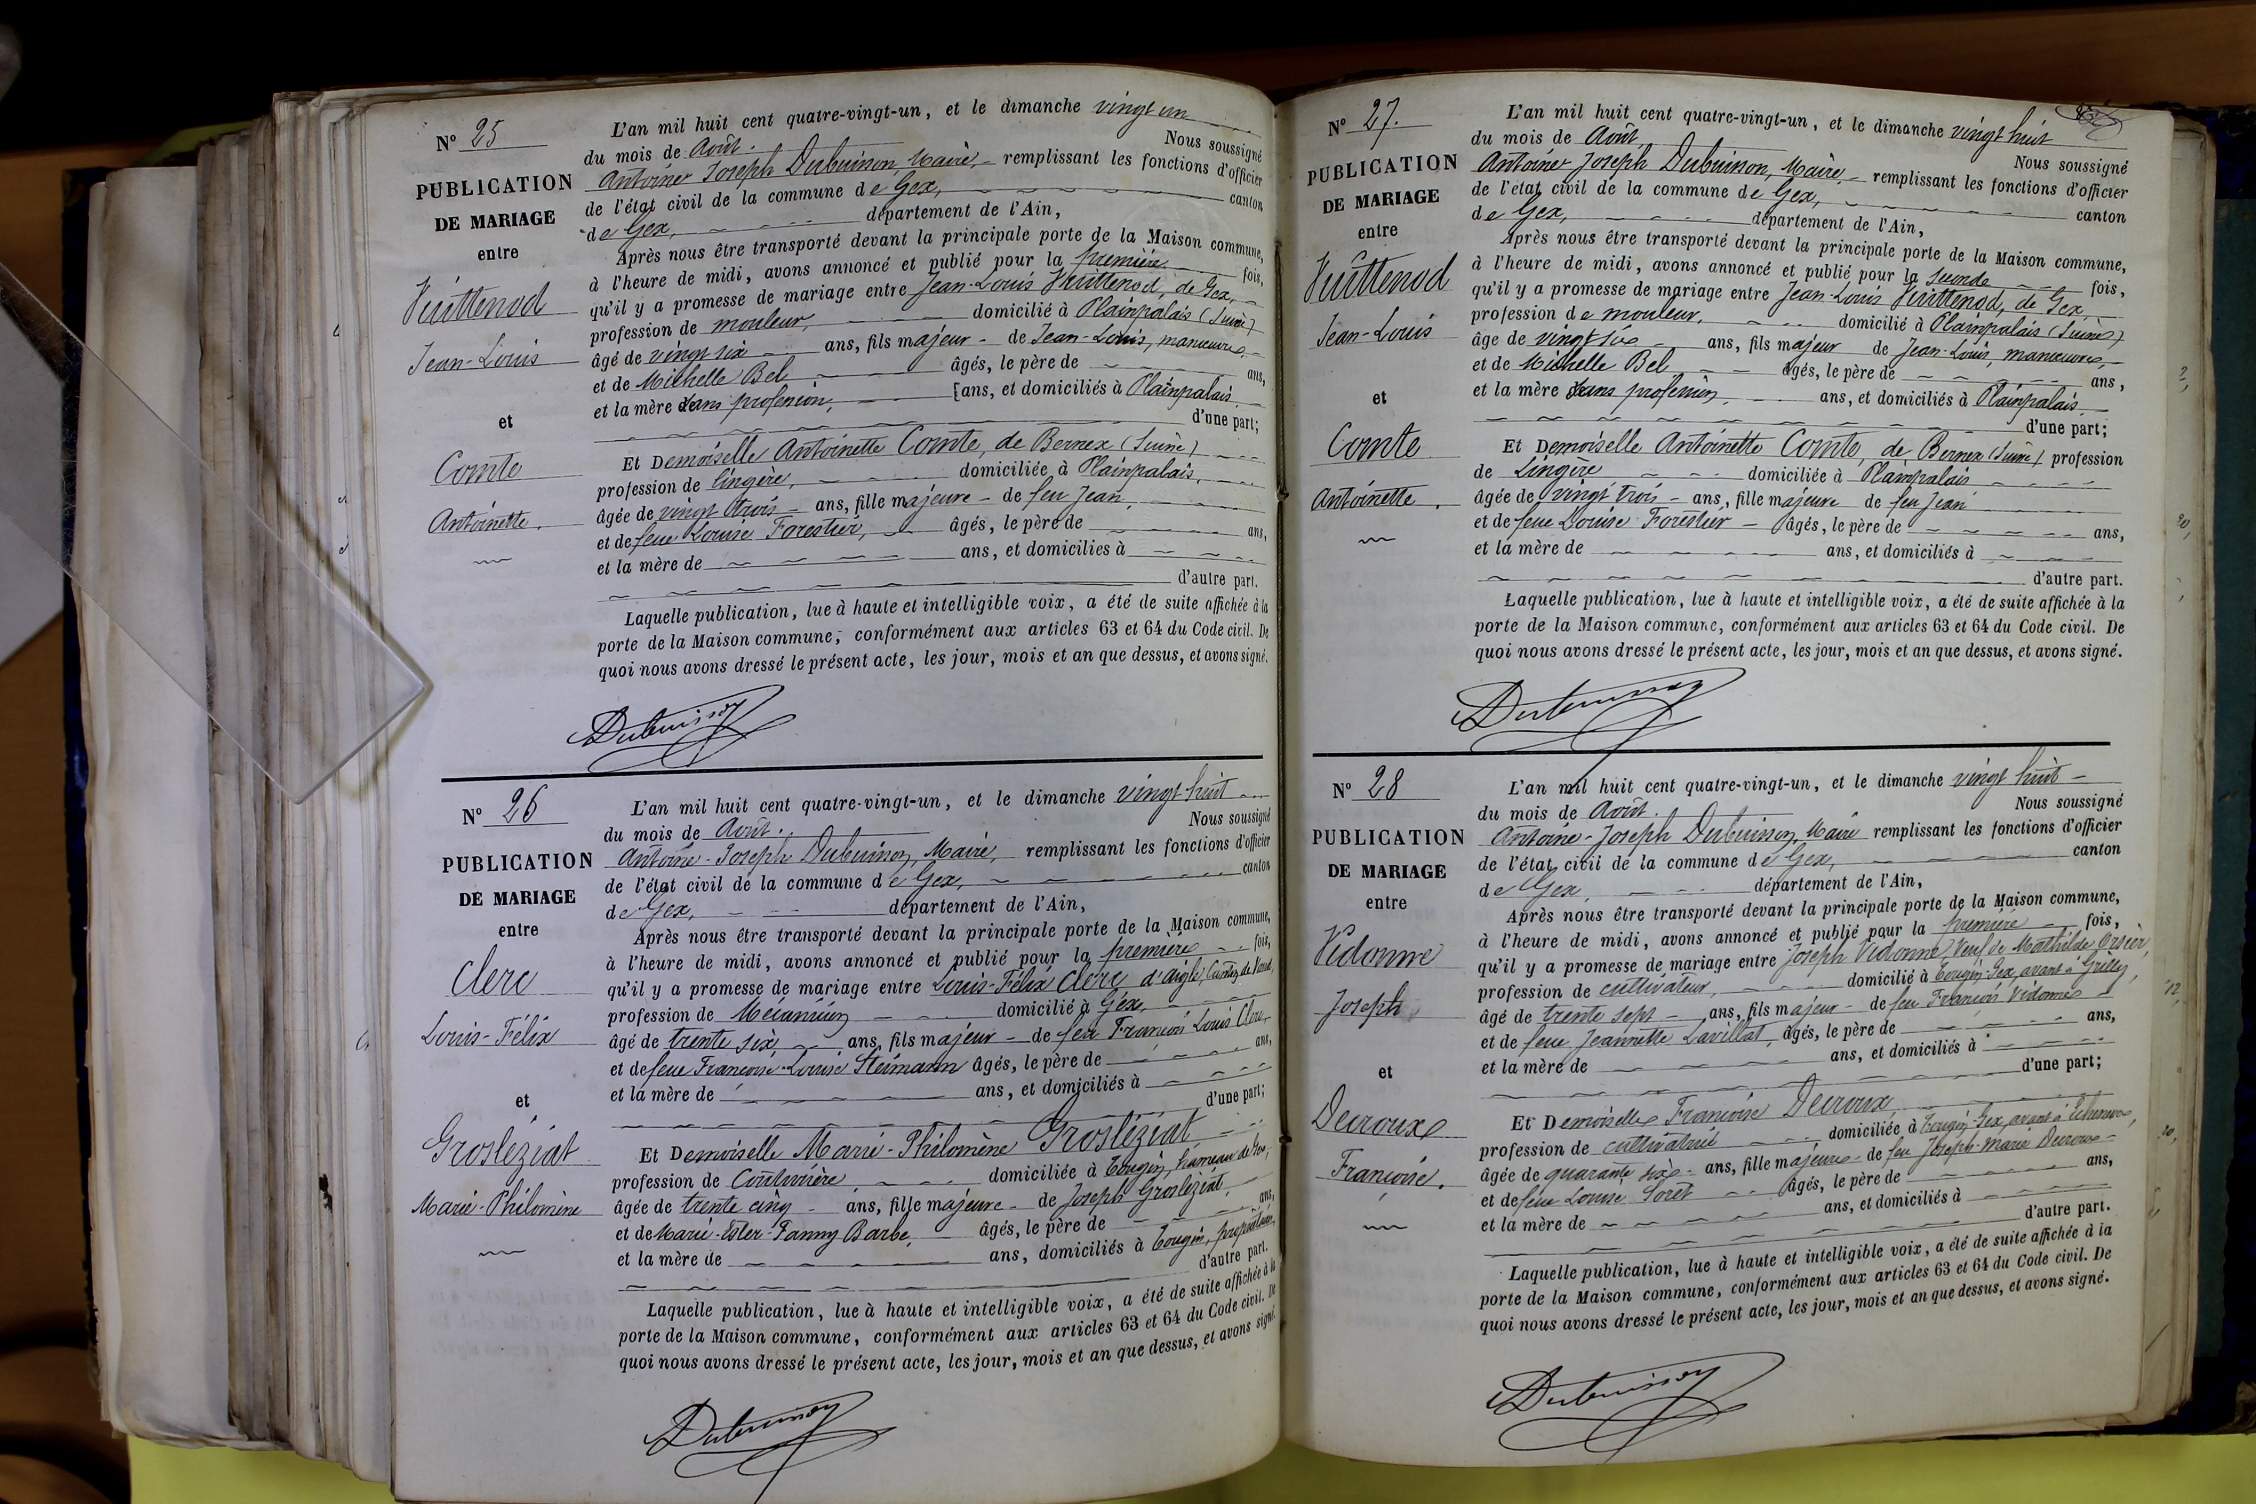 N° 25
PUBLICATION
DE MARIAGE
entre
Vuittenod
Jean-Louis
et
Comte
Antoinette.
L'an mil huit cent quatre-vingt-un, et le dimanche vingt un
du mois de Août. Nous soussigné
Antoine Joseph Dubuisson, Maire, remplissant les fonctions d'officier
de l'état civil de la commune de Gex, canton
de Gex, département de l'Ain,
Après nous être transporté devant la principale porte de la Maison commune,
à l'heure de midi, avons annoncé et publié pour la première fois,
qu'il y a promesse de mariage entre Jean-Louis Vuittenod, de Gex,
profession de mouleur, domicilié à Plainpalais (Suisse)
âgé de vingt six ans, fils majeur de Jean-Louis, manœuvre,
et de Michelle Bel âgés, le père de ans,
et la mère sans profession, ans, et domiciliés à Plainpalais.
d'une part;
Et Demoiselle Antoinette Comte, de Bernex (Suisse)
profession de lingère, domiciliée à Plainpalais,
âgée de vingt trois ans, fille majeure de feu Jean
et de feue Louise Forestier, âgés, le père de ans,
et la mère de ans, et domiciliés à
d'autre part.
Laquelle publication, lue à haute et intelligible voix, a été de suite affichée à la
porte de la Maison commune, conformément aux articles 63 et 64 du Code civil. De
quoi nous avons dressé le présent acte, les jour, mois et an que dessus, et avons signé.
Dubuisson
N° 26
PUBLICATION
DE MARIAGE
entre
Clerc
Louis-Félix
et
Grosléziat
Marie-Philomène
L'an mil huit cent quatre-vingt-un, et le dimanche vingt huit
du mois de Août. Nous soussigné
Antoine-Joseph Dubuisson, Maire, remplissant les fonctions d'officier
de l'état civil de la commune de Gex, canton
de Gex, département de l'Ain,
Après nous être transporté devant la principale porte de la Maison commune,
à l'heure de midi, avons annoncé et publié pour la première fois,
qu'il y a promesse de mariage entre Louis-Félix Clerc d'Aigle, Canton de Vaud,
profession de Mécanicien domicilié à Gex,
âgé de trente six, ans, fils majeur de feu François Louis Clerc,
et de feue Françoise-Louise Steimann âgés, le père de ans,
et la mère de ans, et domiciliés à
d'une part;
Et Demoiselle Marie-Philomène Grosléziat
profession de Couturière, domiciliée à Tougin, hameau de Gex,
âgée de trente cinq ans, fille majeure de Joseph Grosléziat,
et de Marie-Ester-Fanny Barbe, âgés, le père de ans,
et la mère de ans, domiciliés à Tougin, propriétaires,
d'autre part.
Laquelle publication, lue à haute et intelligible voix, a été de suite affichée à la
porte de la Maison commune, conformément aux articles 63 et 64 du Code civil. De
quoi nous avons dressé le présent acte, les jour, mois et an que dessus, et avons signé.
Dubuisson
N° 27.
PUBLICATION
DE MARIAGE
entre
Vuittenod
Jean-Louis
et
Comte
Antoinette.
L'an mil huit cent quatre-vingt-un, et le dimanche vingt huit
du mois de Août Nous soussigné
Antoine Joseph Dubuisson, Maire, remplissant les fonctions d'officier
de l'état civil de la commune de Gex, canton
de Gex, département de l'Ain,
Après nous être transporté devant la principale porte de la Maison commune,
à l'heure de midi, avons annoncé et publié pour la seconde fois,
qu'il y a promesse de mariage entre Jean-Louis Vuittenod, de Gex
profession de mouleur, domicilié à Plainpalais (Suisse)
âgé de vingt six ans, fils majeur de Jean-Louis, manœuvre,
et de Michelle Bel âgés, le père de ans,
et la mère sans profession, ans, et domiciliés à Plainpalais.
d'une part;
Et Demoiselle Antoinette Comte, de Bernex (Suisse) profession
de Lingère domiciliée à Plainpalais
âgée de vingt trois ans, fille majeure de feu Jean
et de feue Louise Forestier âgés, le père de ans,
et la mère de ans, et domiciliés à
d'autre part.
Laquelle publication, lue à haute et intelligible voix, a été de suite affichée à la
porte de la Maison commune, conformément aux articles 63 et 64 du Code civil. De
quoi nous avons dressé le présent acte, les jour, mois et an que dessus, et avons signé.
Dubuisson
N° 28
PUBLICATION
DE MARIAGE
entre
Vidonne
Joseph
et
Ducroux
Françoise.
L'an mil huit cent quatre-vingt-un, et le dimanche vingt huit
du mois de Août. Nous soussigné
Antoine-Joseph Dubuisson, Maire remplissant les fonctions d'officier
de l'état civil de la commune de Gex, canton
de Gex, département de l'Ain,
Après nous être transporté devant la principale porte de la Maison commune,
à l'heure de midi, avons annoncé et publié pour la première fois,
qu'il y a promesse de mariage entre Joseph Vidonne, Veuf de Mathilde Orsier,
profession de cultivateur, domicilié à Tougin-Gex, avant à Grilly,
âgé de trente sept ans, fils majeur de feu François Vidonne
et de feue Jeannette Lavillat, âgés, le père de ans,
et la mère de ans, et domiciliés à
d'une part;
Et Demoiselle Françoise Ducroux
profession de cultivatrice domiciliée à Tougin-Gex, avant à
âgée de quarante six ans, fille majeure de feu Joseph-Marie Ducroux
et de feue Louise Soret âgés, le père de ans,
et la mère de ans, et domiciliés à
d'autre part.
Laquelle publication, lue à haute et intelligible voix, a été de suite affichée à la
porte de la Maison commune, conformément aux articles 63 et 64 du Code civil. De
quoi nous avons dressé le présent acte, les jour, mois et an que dessus, et avons signé.
Dubuisson